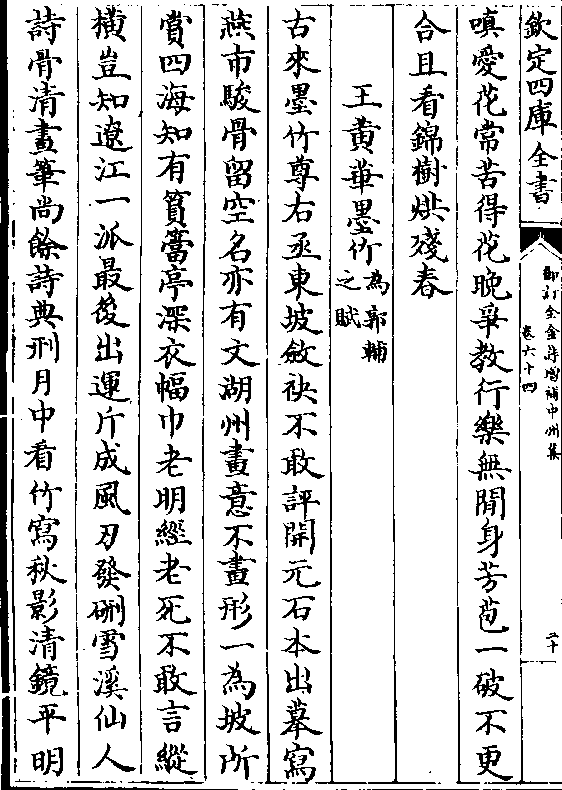 欽定四庫全書
御訂全金詩增補中州集
卷六十四
二十
嗔愛花常苦得花晚爭教行樂無閒身芳苞一破不更
合且看錦樹烘殘春
王黄華墨竹為郭輔之賦
古來墨竹尊右丞東坡斂袂不敢評開元石本出摹寫
燕市駿骨留空名亦有文湖州畫意不畫形一為坡所
賞四海知有篔簹亭深衣幅巾老明經老死不敢言縱
橫豈知遼江一派最後出運斤成風刃發硎雪溪仙人
詩骨清畫筆尚餘詩典刑月中看竹寫秋影清鏡平明